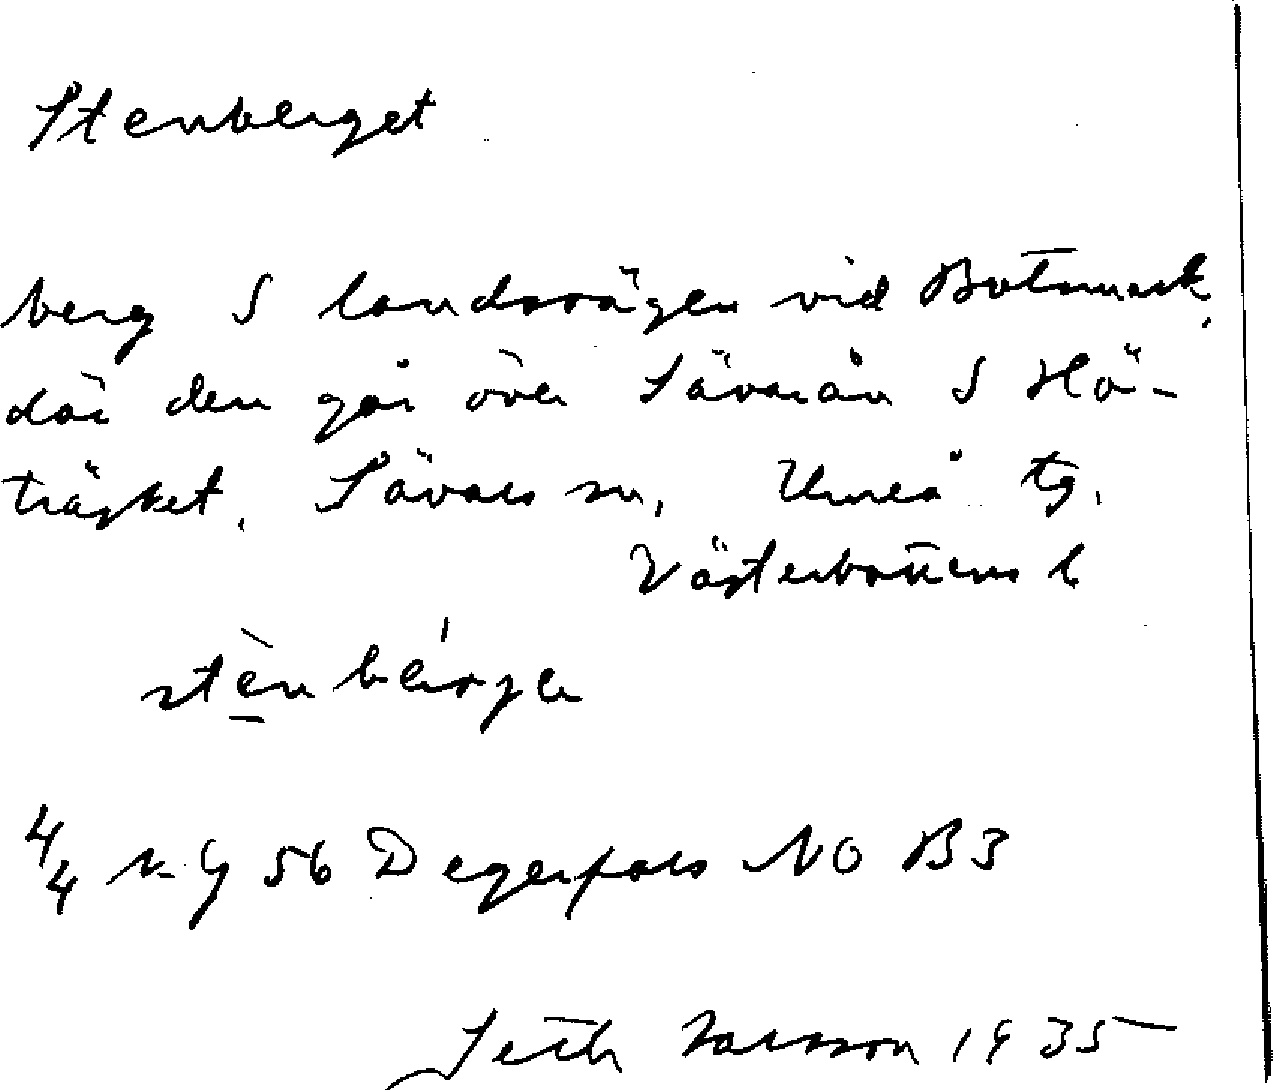 Stenberget
berg S landsvägen vid Botsmark,
där den går över Sävarån S Hö-
träsket. Sävars sn, Umeå tg.
Västerbottens l
stènbärje
4/4 56 Degerfors NO B3
Seth Larsson 1935